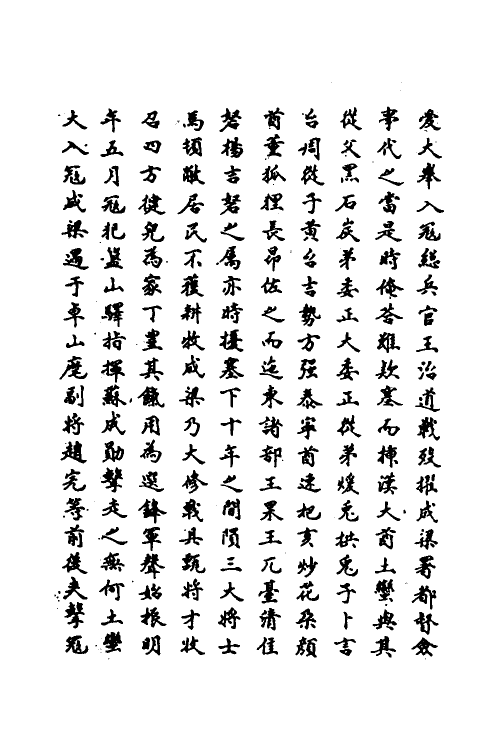 愛大舉入冦總兵官王治道戰歿擢成梁署都督僉
事代之當是時俺荅雖欵塞而揷漢大酋土蠻與其
從父黑石炭弟委正大委正從弟煖兎拱兎子卜言
台周從子黄台吉勢方强泰寜酋速把亥炒花朶顔
酋董狐狸長昂佐之而迤東諸部王杲王兀臺清佳
砮楊吉砮之屬亦時擾塞下十年之間隕三大將士
馬頓敝居民不獲耕牧成梁乃大修戰具甄將才收
召四方健兒為家丁豊其餼用為選鋒軍聲始振明
年五月冦犯盤山驛指揮蘇成勛擊走之無何土蠻
大入冦成梁遇于卓山麾副將趙完等前後夾擊冦